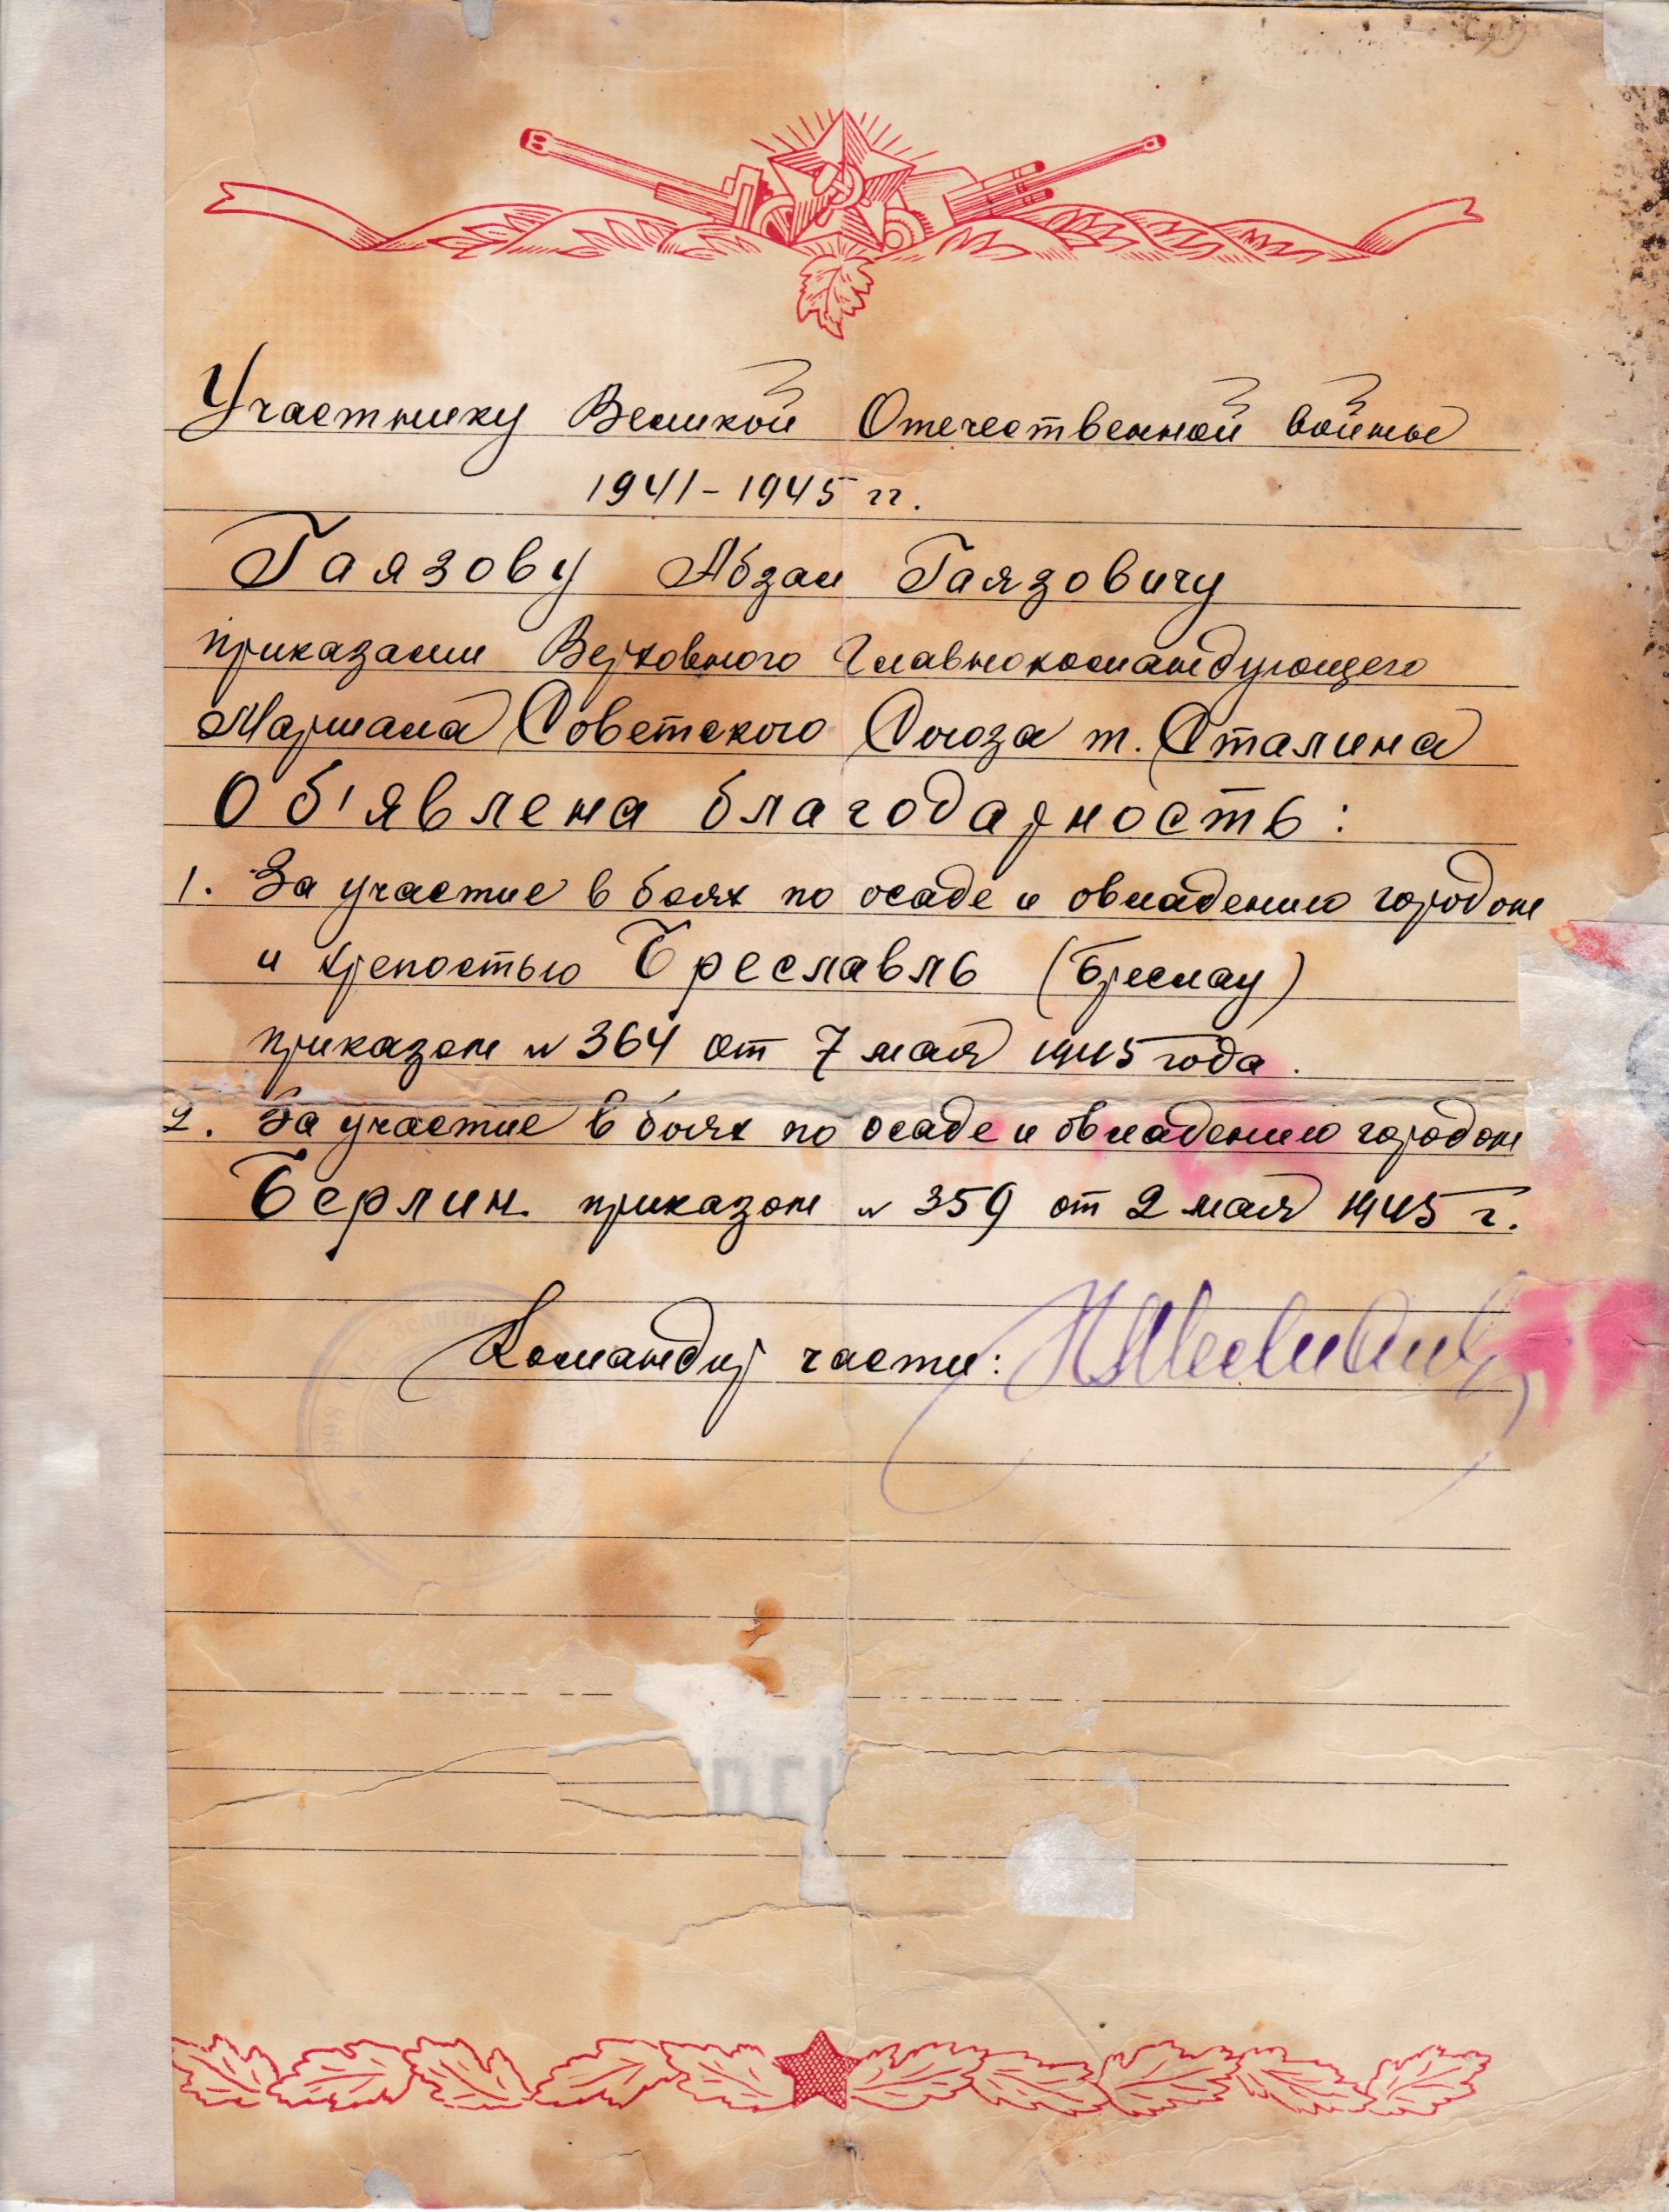 Участнику Великой Отечественной войны
1941-1945 гг.
Гаязову Абзал Гаязовичу
приказами Верховного Главнокомандующего
Маршала Советского Союза т. Сталина
Об'явлена благодарность:
1. За участие в боях по осаде и овладению городом
и крепостью Бреславль (Бреслау)
приказом № 364 от 7 мая 1945 года.
2. За участие в боях по осаде и овладению городом
Берлин приказом № 359 от 2 мая 1945 г.
Командир части: